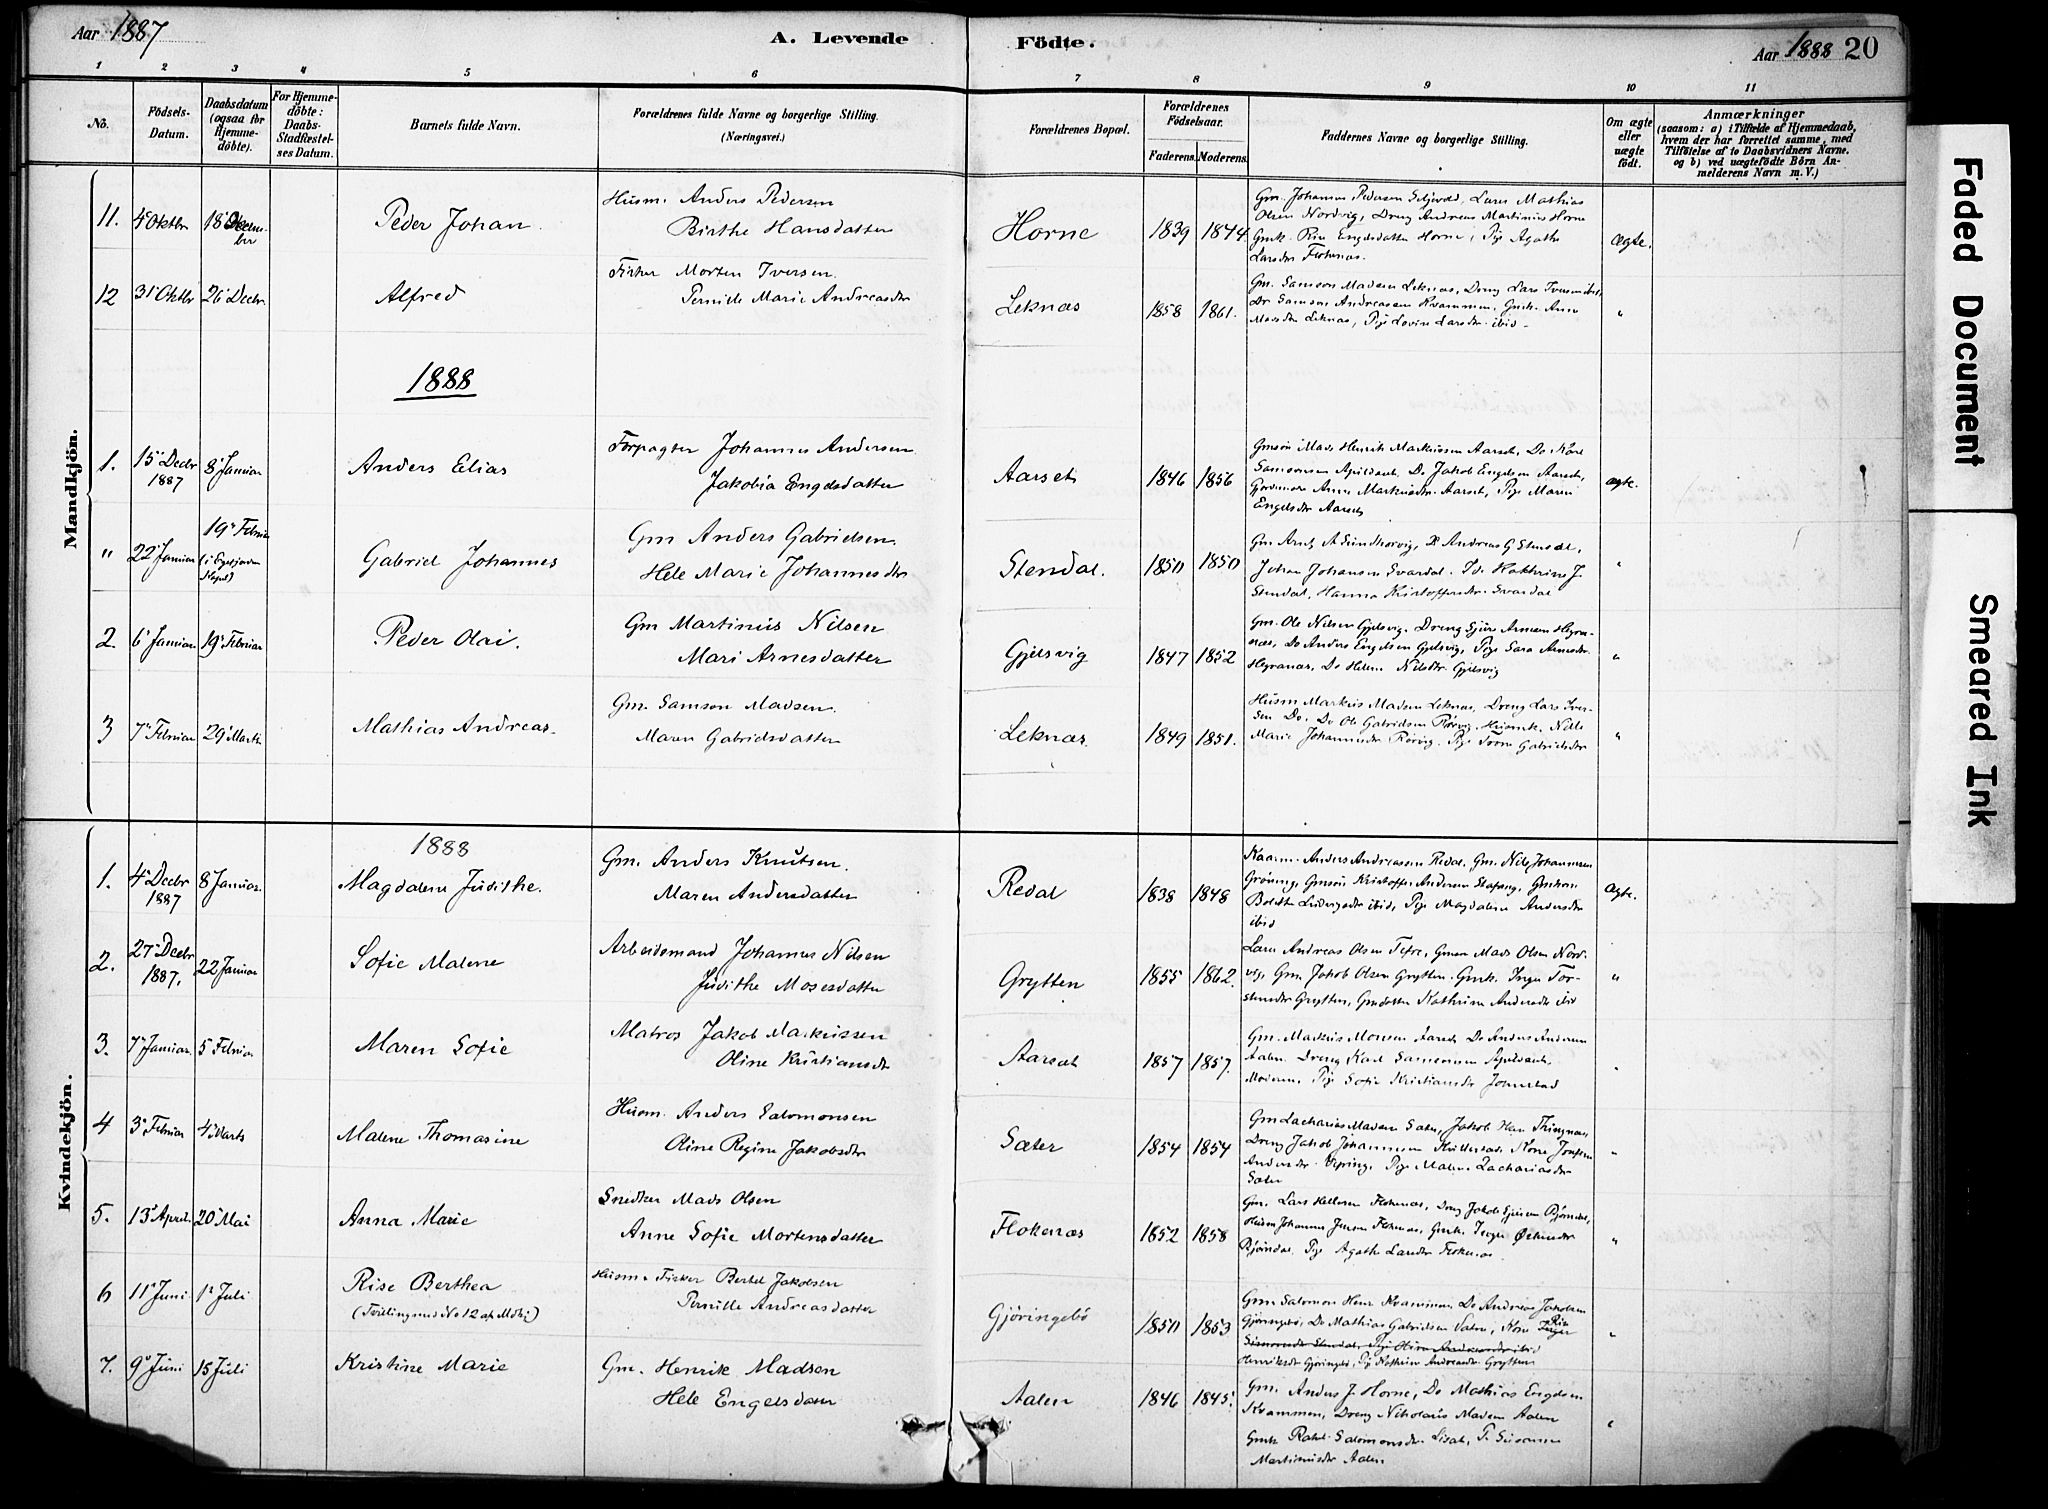 Aar 1887
A. Levende
Födte.
Aar 1888
20
1 2 3 4 5 6 7 8 9 10 11
No.
Födsels-Datum.
Daabsdatum (ogsaa for Hjemme-döbte).
For Hjemme-döbte: Daabs-Stadfæstel-ses Datum.
Barnets fulde Navn.
Forældrenes fulde Navne og borgerlige Stilling.
(Næringsvei.)
Forældrenes Bopæl.
Forældrenes Födselsaar.
Faderens. Moderens.
Faddernes Navne og borgerlige Stilling.
Om ægte eller uægte födt.
Anmærkninger
(saasom: a) i Tilfælde af Hjemmedaab,
hvem der har forrettet samme, med
Tilföielse af to Daabsvidners Navne.
og b) ved uægtefödte Börn An-
melderens Navn m. V.)
Mandkjön.
11. 4 Oktbr 18 Decem-ber Peder Johan Husm. Anders Pedersen
Birthe Hansdatter Horne 1839 1844. ægte.
Gm. Johannes Pedersen, Lars Mathias
Olsen Nordvig, Dreng Andreas Martinus Horne
Gmk. Engelsdatter Horne, Pige Agathe
Larsdtr Flokenæs.
12 31 Oktbr 26 Decbr. Alfred Fisker Morten Iversen.
Pernille Marie Andreasdtr Leknæs 1858 1861. "
Gm. Samson Madsen Leknæs, Dreng Lars Iversen ibid,
Dr Samson Andreasen Kvammen, Gmk. Anne
Leknæs, Pige Lovise Larsdtr ibid.
1888
1. 15 Decbr 1887 8 Januar Anders Elias Forpagter Johannes Andersen
Jakobia Engelsdatter Aarset 1846 1856 ægte.
Gmsön Mads Henrik Markussen Aarset, Do Kàrl
Samsonsen Apildsæt, Do Jakob Engelsen Aarset,
Anne Markusdtr. Aarset, Pige Maren
Engelsdtr Aarset
" 22 Januar 19 Februar Gabriel Johannes Gm Anders Gabrielsen.
Hele Marie Johannesdtr Stendal. 1850 1850 "
Andreas G Stendal,
Johan Johansen Svardal. J.
Stendal, Hanna Kristoffersdtr. Svardal
2. 6 Januar 19 Februar Peder Olai. Gm Martinus Nilsen
Mari Arnesdatter Gjelsvig 1847 1852 "
Gm. Ole Nilsen Gjelsvig. Dreng Sjur Arnesen Hyra-
næs, Do Anders Engelsen Gjelsvig, Pige Sara Arnesdtr.
Hyranæs, Do Helene Nilsdtr. Gjelsvig
3 7 Februar 29 Marts Mathias Andreas. Gm. Samson Madsen.
Maren Gabrielsdatter Leknæs. 1849 1851. "
Husm Markus Madsen Leknæs, Dreng Lars Iver-
sen Do. Do Ole Gabrielsen Rörvig. Husmk. Nille
Marie Johannesdtr Rörvig. Pige Gabrielsdtr
Kvindekjön.
1888
1. 4 Decbr 1887 8 Januar. Magdalene Judithe. Gm. Anders Knutsen.
Maren Andersdatter Redal 1838 1848 ægte.
Kaarm. Anders Andreassen Redal. Gm. Nils Johannesen
Gröning, Gmsön Kristoffer Andersen Stafang, Gmkone
Ludvigsdtr ibid, Pige Magdalene Andersdtr
ibid
2. 27 Decbr 1887. 22 Januar Sofie Malene Arbeidsmand Johannes Nilsen
Judithe Mosesdatter Grytten 1855 1862. "
Lars Andreas Olsen Tefre, Gmsön Mads Olsen Nord-
vig, Gm. Jakob Olsen Grytten. Gmk. Inger Tor-
stensdtr Grytten, Gmdatter Kathrine Andersdtr ibid
3. 7 Januar. 5 Februar Maren Sofie Matros Jakob Markussen
Oline Kristiansdtr Aarsæt 1857 1857. "
Gm. Markus Monsen Aarset, Do Anders Andersen
Aalen. Dreng Karl Samsonsen Apildsæt,
Moderen, Pige Sofie Kristiansdtr
4 3 Februar 4 Marts Malene Thomasine Husm. Anders Salomonsen
Oline Regine Jakobsdtr Sæter 1854 1854 "
Gm Zacharias Madsen Sæter, Jakob
Dreng Jakob Johannessen
Andersdtr Pige Malene Zachariasdtr
Sæter
5. 13 April 20 Mai Anna Marie Snedker Mads Olsen
Anne Sofie Mortensdatter Flokenæs 1852 1858 "
Gm. Lars Flokenæs, Dreng Jakob Björndal,
Husm Johannes Jensen Flokenæs, Gmk. Inger
Björndal, Pige Agathe Larsdtr Flokenæs
6 11 Juni 1 Juli Rise Berthea
(Tvilling med No 12 af Mdkj) Husm. Fisker Bertel Jakobsen
Pernille Andreasdatter Gjöringebö 1850 1853 "
Gm Salomon Kvammen, Do Andreas Jakobsen
Gjöringebö, Do Mathias Gabrielsen, Kone Inger
Henriksdtr Gjöringebö, Pige Kathrine Andreasdtr Grytten
7. 9 Juni 15 Juli Kristine Marie Gm. Henrik Madsen
Hele Engelsdatter Aalen 1846 1845. "
Gm. Anders J. Horne, Do Mathias Engelsen
Kvammen, Dreng Nikolaus Madsen Aalen
Gmk Rakel Salomonsdtr. P. Susanne
Martinusdtr Aalen
Faded Document
Smeared Ink